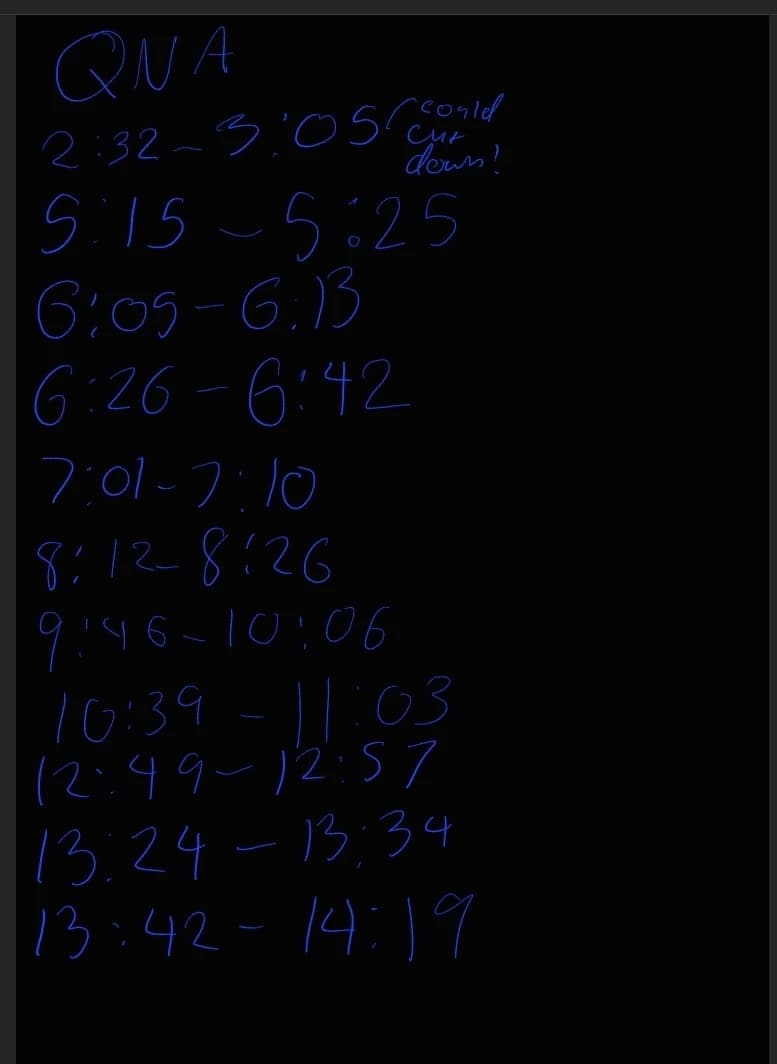 QNA
2:32-3:05 (could
cut
down!
5:15-5:25
6:05-6:13
6:26-6:42
7:01-7:10
8:12-8:26
9:46-10:06
10:39-11:03
12:49-12:57
13:24-13:34
13:42-14:19